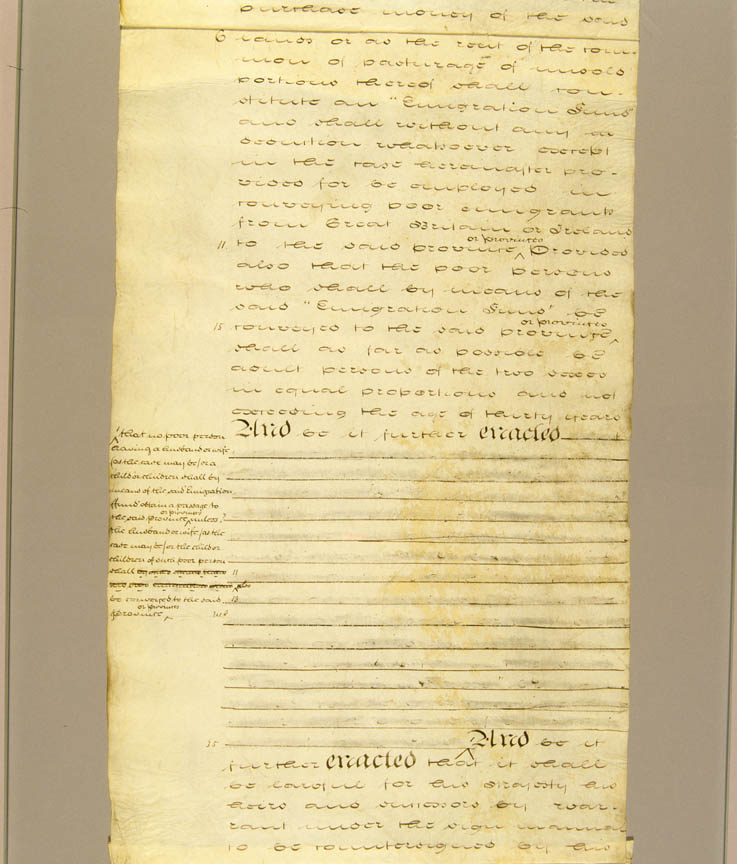 purchase money of the said
6 lands or as the rent of the com-
mon of pasturage of unsold
portions thereof shall con-
stitute an "Emigration Fund"
and shall without any de
deduction whatsoever except
in the case hereinafter pro-
vided for be employed in
conveying poor emigrants
from Great Britain or Ireland
or provinces
11 to the said province ^ Provided
also that the poor persons
who shall by means of the
said "Emigration Fund" be
or provinces
15 conveyed to the said province ^
shall as far as possible be
adult persons of the two sexes
in equal proportions and not
exceeding the age of thirty years
And be it further enacted
that no poor person
having a husband or wife
(as the case may be) or a
child or children shall by
means of the said Emigration
Fund obtain a passage to
or provinces
the said province ^ unless
the husband or wife (as the
case may be) or the child or
children of such poor person
shall
11
also
be conveyed to the said
13
or provinces
province ^
35 And be it
further enacted that it shall
be lawful for his Majesty his
heirs and successors by war-
rant under the sign manual
to be countersigned by his